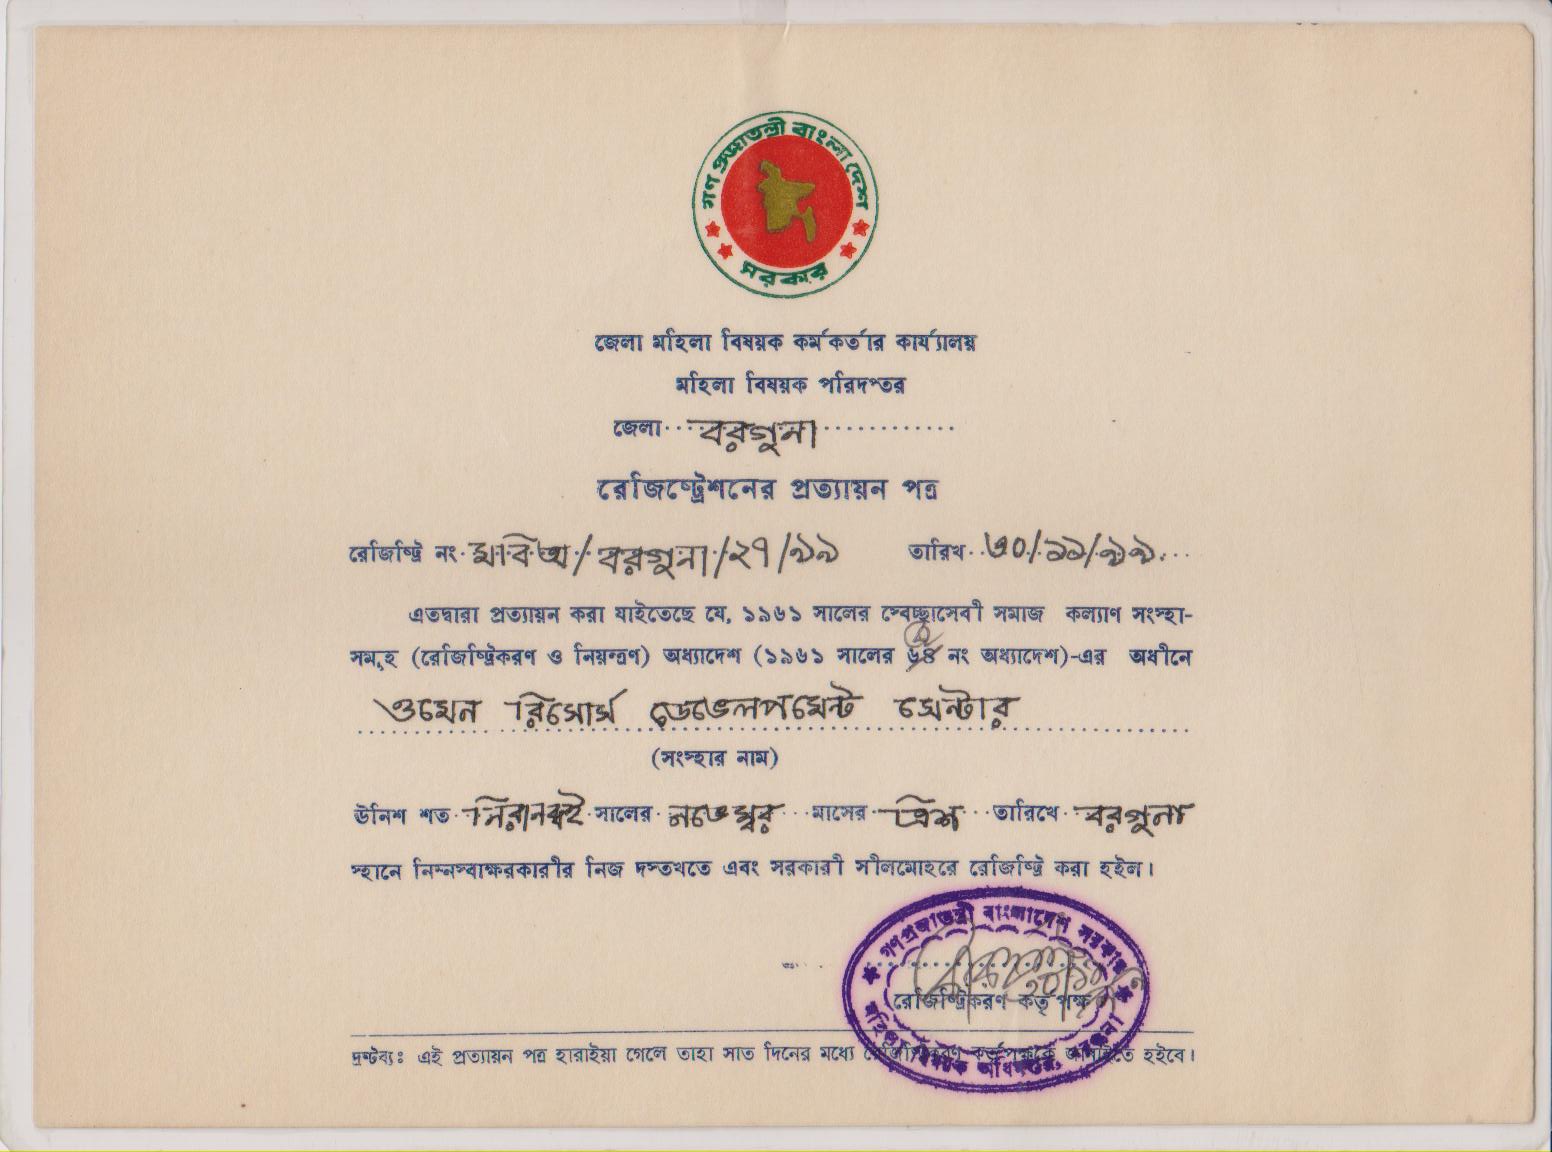 গণ প্রজাতন্ত্রী বাংলাদেশ
সরকার
জেলা মহিলা বিষয়ক কর্মকর্তার কার্য্যালয়
মহিলা বিষয়ক পরিদপ্তর
জেলা....বরগুনা............
রেজিষ্ট্রেশনের প্রত্যায়ন পত্র
রেজিষ্ট্রি নং. মবিঅ/বরগুনা/২৭/৯৯ তারিখ..৩০/১১/৯৯...
এতদ্বারা প্রত্যায়ন করা যাইতেছে যে, ১৯৬১ সালের স্বেচ্ছাসেবী সমাজ কল্যাণ সংস্হা-
সমূহ (রেজিষ্ট্রিকরণ ও নিয়ন্ত্রণ) অধ্যাদেশ (১৯৬১ সালের ৪ নং অধ্যাদেশ)-এর অধীনে
ওমেন রিসোর্স ডেভেলপমেন্ট সেন্টার
(সংস্হার নাম)
ঊনিশ শত নিরানব্বই সালের নভেম্বর মাসের ত্রিশ তারিখে বরগুনা
স্হানে নিম্নস্বাক্ষরকারীর নিজ দস্তখতে এবং সরকারী সীলমোহরে রেজিষ্ট্রি করা হইল।
গণপ্রজাতন্ত্রী বাংলাদেশ সরকার
রেজিষ্ট্রিকরণ কর্তৃপক্ষ
মহিলা বিষয়ক অধিদপ্তর, বরগুনা
দ্রষ্টব্য: এই প্রত্যায়ন পত্র হারাইয়া গেলে তাহা সাত দিনের মধ্যে রেজিষ্ট্রিকরণ কর্তৃপক্ষকে জানাইতে হইবে।